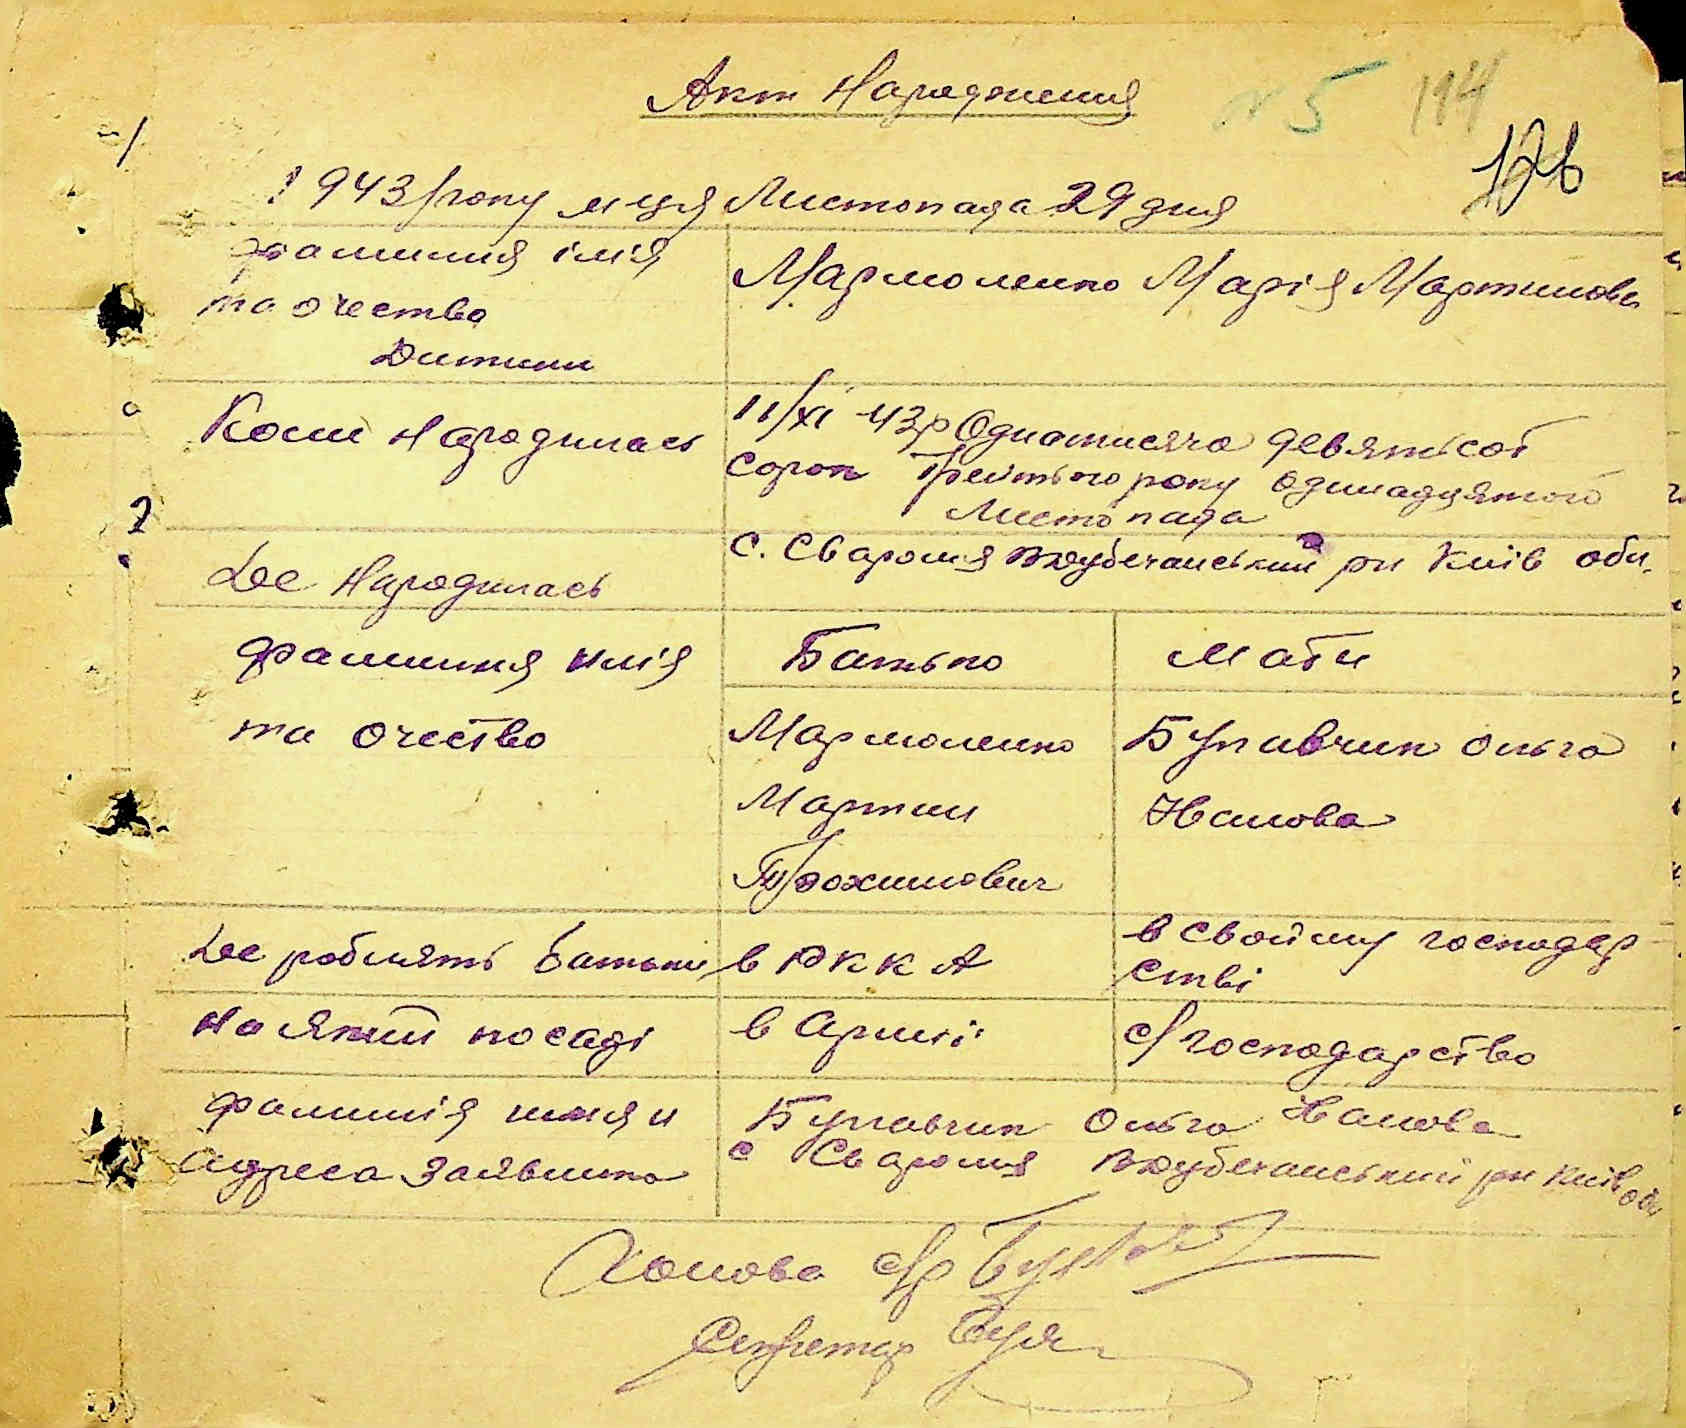 Акт Народження
N 5 194
126
1943/року м-ця Листопада 29 дня
фамилия імія
та очество
Дитини
Мармоленко Марія Мартинова
Коли народилась
11/XI 43р Однатисяча девятьсот
сорок третього року одинадцятого
Листопада
Де Народилась
с. Сваромя Вдубечанський рн Київ обл.
фамилия имія
та очество
Батько
Мати
Мармоленко
Мартин
Трохимович
Булавчик Ольга
Іванова
Де роблять батьки
в РККА
в свойму господар
стві
на якій посаді
в Армії
с/господарство
фамилія имия и
адреса заявника
Булавчик Ольга Іванова
с Сваромя Вдубечанський рн Київ обл
Голова с/р
Секретар